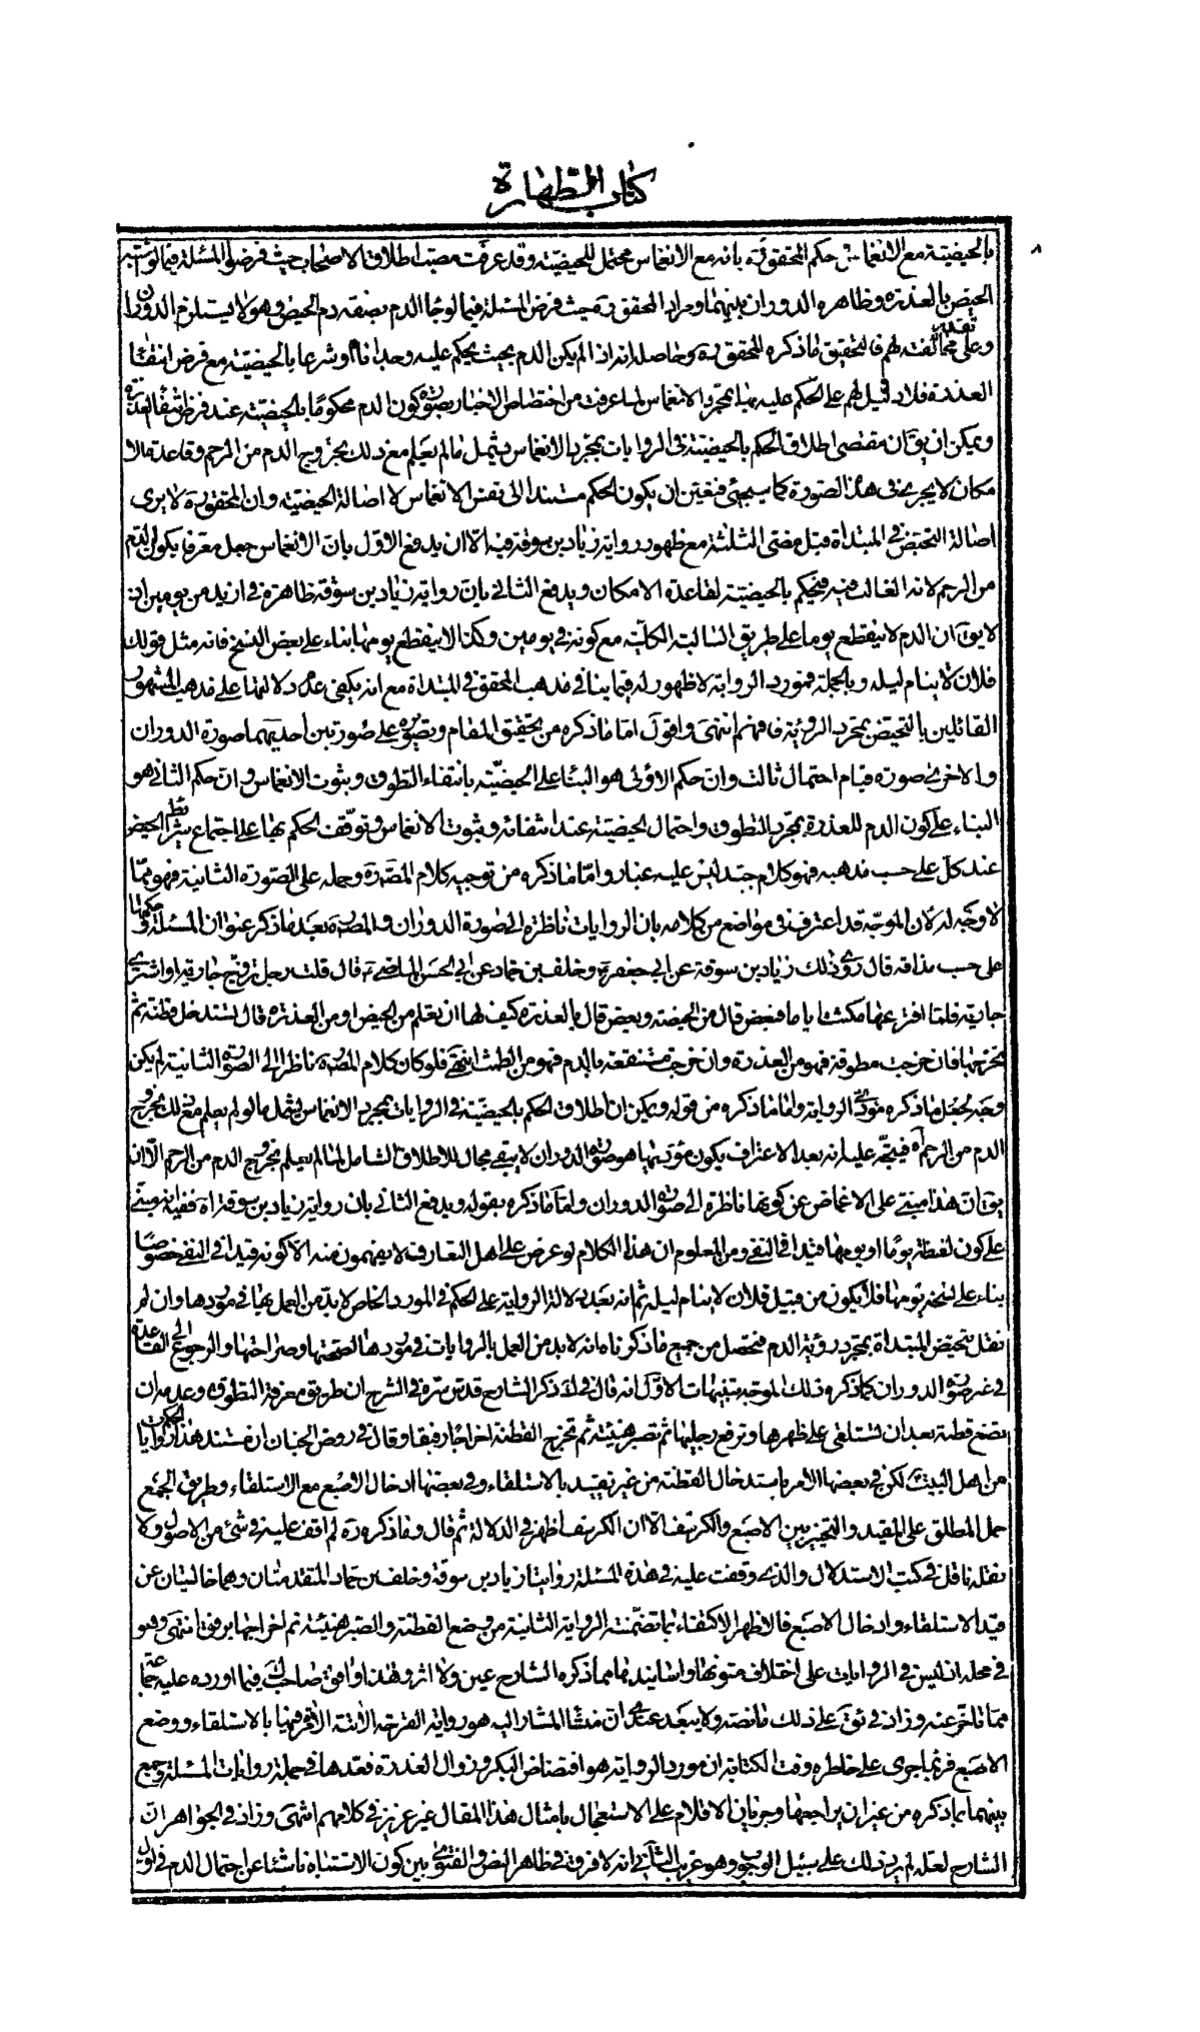 كتاب الطهارة
٨
بالحيضيّة مع الانغماس حكم المحقق ره بانه مع الانغماس محتمل للحيضيّة وقد عرفت مصبّ اطلاق الاصحاب حيث فرضوا المسئلة فيما لو اشتبه
الحيض بالعذرة وظاهره الدوران بينهما ومراد المحقق ره حيث فرض المسئلة فيما لو جاء الدم بصفة دم الحيض وهو لا يستلزم الدوران
وعلى تقدير مخالفته لهم فالتحقيق ما ذكره المحقق ره وحاصله انه اذا لم يكن الدم بحيث يحكم عليه وجدانا او شرعا بالحيضيّة مع فرض انتفاء
العذرة فلا دليل لهم على الحكم عليه بها بمجرّد الانغماس لما عرفت من اختصاص الاخبار بصورة كون الدم محكومًا بالحيضيّة عند فرض انتفاء العذرة
ويمكن ان يق ان مقتضى اطلاق الحكم بالحيضيّة فى الروايات بمجرد الانغماس يشمل ما لم يعلم مع ذلك بخروج الدم من الرحم وقاعدة الا
مكان لا يجرى فى هذه الصّورة كما سيجئ فتعيّن ان يكون الحكم مستندا الى نفس الانغماس لا اصالة الحيضيّة وان المحقق ره لا يرى
اصالة التحيّض فى المبتداة قبل مضى الثلثة مع ظهور رواية زياد بن سوقة فيه الا ان يدفع الاوّل بان الانغماس جعل معرفا يكون الدم
من الرحم لانه الغالب فيه فيحكم بالحيضيّة لقاعدة الامكان ويدفع الثانى بان رواية زياد بن سوقة ظاهرة فى ازيد من يومين اذ
لا يق ان الدم لا ينقطع يوما على طريق السالبة الكليّة مع كونه فى يومين وكذا لا ينقطع يومها بناء على بعض النسخ فانه مثل قولك
فلان لا ينام ليله وبالجملة فمورد الرواية لا ظهور له فيما ينافى مذهب المحقق فى المبتداة مع انه يكفى عدم دلالتها على مذهب المشهور
القائلين بالتحيض بمجرد الرؤية فافهم انتهى واقول امّا ما ذكره من تحقيق المقام وتصويره على صورتين احديهما صورة الدوران
والاخرى صورة قيام احتمال ثالث وان حكم الاولى هو البناء على الحيضيّة بانتفاء التطوق وبثبوت الانغماس وان حكم الثانى هو
البناء على كون الدم للعذرة بمجرّد التطوق واحتمال الحيضيّة عند انتفائه وثبوت الانغماس وتوقّف الحكم بها على اجتماع شرائط الحيض
عند كلّ على حسب مذهبه فهو كلام جيد ليس عليه غبار وامّا ما ذكره من توجيه كلام المص ره وحمله على الصّورة الثانية فهو ممّا
لا وجه له لان الموجّه قد اعترف فى مواضع من كلامه بان الروايات ناظرة الى صورة الدوران والمص ره بعد ما ذكر عنوان المسئلة وحكمها
على حسب مذاقه قال روى ذلك زياد بن سوقة عن ابى جعفر ع وخلف بن حماد عن ابى الحسن الماضى ع قال قلت رجل تزوّج جارية او اشترى
جارية فلمّا افترعها مكثت اياما فبعض قال من الحيضة وبعض قال بالعذرة كيف لها ان تعلم من الحيض او من العذرة قال تستدخل قطنة ثم
تخرجها فان خرجت مطوقة فهو من العذرة وان خرجت مستنقعة بالدم فهو من الطمث انتهى فلو كان كلام المص ره ناظرا الى الصّورة الثانية لم يكن
وجه لجعل ما ذكره مؤدى الرواية وامّا ما ذكره من قوله ويمكن ان اطلاق الحكم بالحيضيّة فى الروايات بمجرد الانغماس يشمل ما لو لم يعلم مع ذلك بخروج
الدم من الرحم آه فيتجه عليه انه بعد الاعتراف بكون مؤديها هو صورة الدوران لا يبقى مجال للاطلاق الشامل لما لم يعلم بخروج الدم من الرحم الّا ان
يق ان هذا مبنى على الاغماض عن كونها ناظرة الى صورة الدوران وامّا ما ذكره بقوله ويدفع الثانى بان رواية زياد بن سوقة آه ففيه انه مبنى
على كون لفظة يومًا او يومها قيدا فى النفى ومن المعلوم ان هذا الكلام لو عرض على اهل التعارف لا يفهمون منه الا كونه قيدا فى النفى خصوصًا
بناء على نسخة يومها فلا يكون من قبيل فلان لا ينام ليله ثم انه بعد دلالة الرواية على الحكم فى المورد الخاص لا بدّ من العمل بها فى موردها وان لم
نقل بتحيض المبتداة بمجرّد رؤية الدم فتحصل من جميع ما ذكرناه انه لا بد من العمل بالروايات فى موردها لصحتها وصراحتها والرجوع الى القاعدة
فى غير صورة الدوران كما ذكره ذلك الموجّه تنبيهات الاوّل انه قال فى لك ذكر الشارح قدس سره فى الشرح ان طريق معرفة التطوق وعدمه ان
تضع قطنة بعد ان تستلقى على ظهرها وترفع رجليها ثم تصبر هنيئة ثم تخرج القطنة اخراجا رفيقا وقال فى روض الجنان ان مستند هذا الحكم روايات
من اهل البيت ع لكن فى بعضها الامر باستدخال القطنة من غير تقييد بالاستلقاء وفى بعضها ادخال الاصبع مع الاستلقاء وطريق الجمع
حمل المطلق على المقيد والتخيير بين الاصبع والكرسف الا ان الكرسف اظهر فى الدلالة ثم قال وما ذكره ره لم اقف عليه فى شئ من الاصول ولا
نقله ناقل فى كتب الاستدلال والذى وقفت عليه فى هذه المسئلة روايتا زياد بن سوقة وخلف بن حماد المتقدمتان وهما خاليتان عن
قيد الاستلقاء وادخال الاصبع فالاظهر الاكتفاء بما تضمّنته الرواية الثانية من وضع القطنة والصبر هنيئة ثم اخراجها برفق انتهى وهو
فى محله اذ ليس فى الروايات على اختلاف متونها واسانيدها مما ذكره الشارح عين ولا اثر ولهذا وافق صاحب ئق فيما اورده عليه جماعة
ممّا تأخّر عنه وزاد فى ئق على ذلك ما نصّه ولا يبعد عندى ان منشأ المشار اليه هو رواية القرحة الاتية الآمر فيها بالاستلقاء ووضع
الاصبع فربّما جرى على خاطره وقت الكتابة ان مورد الرواية هو افتضاض البكر وزوال العذرة فعدّها فى جملة روايات المسئلة وجمع
بينهما بما ذكره من غير ان يراجعها وجريان الاقلام على الاستعجال بامثال هذا المقال غير عزيز فى كلامهم انتهى وزاد فى الجواهر ان
الشارح لعله لم يرد ذلك على سبيل الوجوب وهو غريب الثانى انه لا فرق فى ظاهر النص والفتوى بين كون الاشتباه ناشئا عن احتمال الدم فى اول